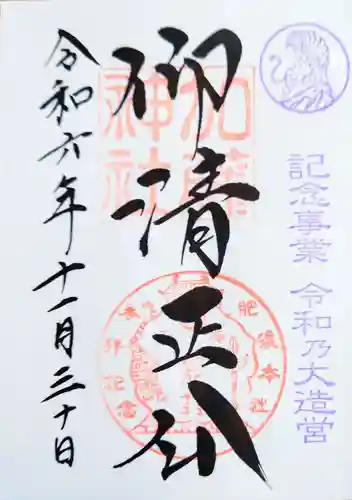 記念事業 令和乃大造営
仰清正公
加藤神社
肥後本社
参拝記念
令和六年十一月三十日